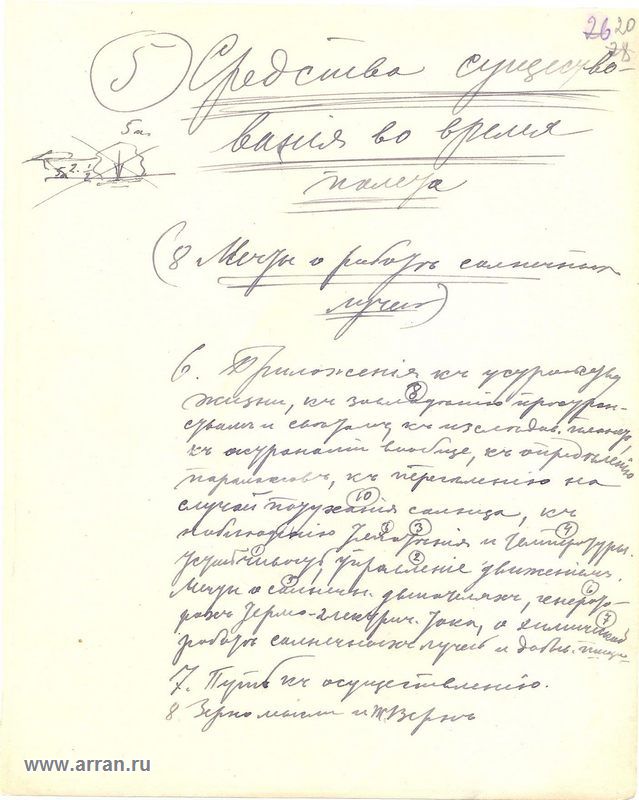 26 20
28
5 Средства существо-
вания во время
полета
5 м.
5 м 2. 1/2
(8 Мечты о работѣ солнечных
лучей)
6. Приложенія къ устройству
жизни, къ завладѣнію простран-
ством и свѣтом, къ изслѣдов. планет,
къ астрономіи вообще, къ опредѣленію
параллаксовъ, къ переселенію на
случай потуханія солнца, къ
наблюденію тяготѣнія и температуры.
Устойчивость, управленіе движеніем.
Мечты о солнечн. двигателяхъ, генерато-
рахъ термо-электрич. тока, о химической
работѣ солнечныхъ лучей и добыв. пищи
8
10
5 3 4
1 2
5 6
7
7. Путь къ осуществленію.
8 Зерно мысли и Ж. Вернъ
www.arran.ru